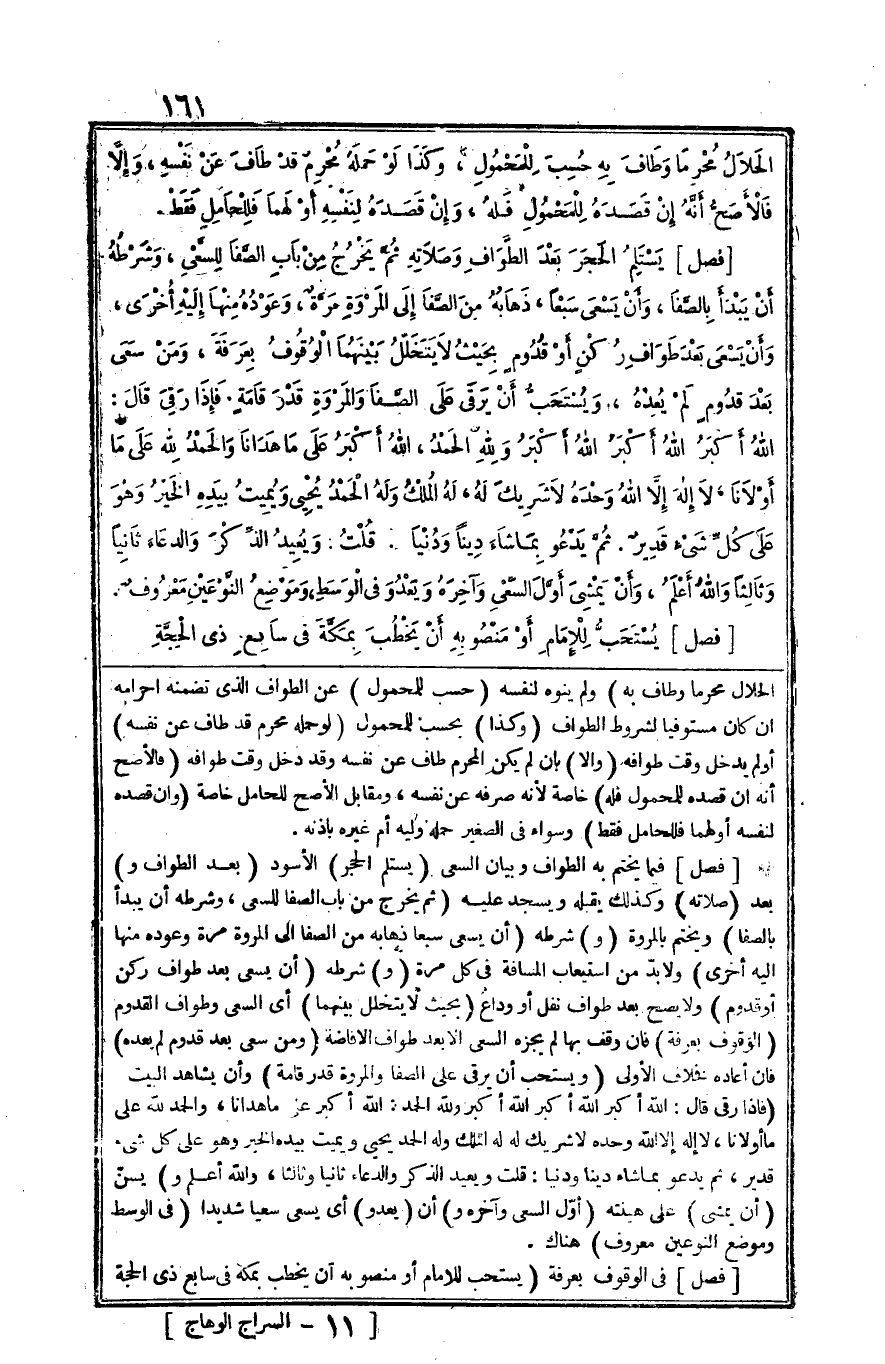 ١٦١
الحَلَالُ مُحْرِمًا وَطَافَ بِهِ حُسِبَ لِلْمَحْمُولِ ، وَكَذَا لَوْ حَمَلَهُ مُحْرِمٌ قَدْ طَافَ عَنْ نَفْسِهِ ، وَإِلَّا
فَالْأَصَحُّ أَنَّهُ إِنْ قَصَدَهُ لِلْمَحْمُولِ فَلَهُ ، وَإِنْ قَصَدَهُ لِنَفْسِهِ أَوْ لَهُمَا فَلِلْحَامِلِ فَقَطْ .
[ فصل ] يَسْتَلِمُ الْحَجَرَ بَعْدَ الطَّوَافِ وَصَلَاتِهِ ثُمَّ يَخْرُجُ مِنْ بَابِ الصَّفَا لِلسَّعْيِ ، وَشَرْطُهُ
أَنْ يَبْدَأَ بِالصَّفَا ، وَأَنْ يَسْعَى سَبْعًا ، ذَهَابُهُ مِنَ الصَّفَا إِلَى الْمَرْوَةِ مَرَّةٌ ، وَعَوْدُهُ مِنْهَا إِلَيْهِ أُخْرَى ،
وَأَنْ يَسْعَى بَعْدَ طَوَافِ رُكْنٍ أَوْ قُدُومٍ بِحَيْثُ لَا يَتَخَلَّلُ بَيْنَهُمَا الْوُقُوفُ بِعَرَفَةَ ، وَمَنْ سَعَى
بَعْدَ قُدُومٍ لَمْ يُعِدْهُ ، وَيُسْتَحَبُّ أَنْ يَرْقَى عَلَى الصَّفَا وَالْمَرْوَةِ قَدْرَ قَامَةٍ . فَإِذَا رَقِيَ قَالَ :
اللهُ أَكْبَرُ اللهُ أَكْبَرُ اللهُ أَكْبَرُ وَلِلهِ الْحَمْدُ ، اللهُ أَكْبَرُ عَلَى مَا هَدَانَا وَالْحَمْدُ لِلهِ عَلَى مَا
أَوْلَانَا ، لَا إِلٰهَ إِلَّا اللهُ وَحْدَهُ لَا شَرِيكَ لَهُ ، لَهُ الْمُلْكُ وَلَهُ الْحَمْدُ يُحْيِي وَيُمِيتُ بِيَدِهِ الْخَيْرُ وَهُوَ
عَلَى كُلِّ شَيْءٍ قَدِيرٌ . ثُمَّ يَدْعُو بِمَا شَاءَ دِينًا وَدُنْيَا . قُلْتُ : وَيُعِيدُ الذِّكْرَ وَالدعاءَ ثَانِيًا
وَثَالِثًا وَاللهُ أَعْلَمُ ، وَأَنْ يَمْشِيَ أَوَّلَ السَّعْيِ وَآخِرَهُ وَيَعْدُوَ فِي الْوَسَطِ ، وَمَوْضِعُ النَّوْعَيْنِ مَعْرُوفٌ .
[ فصل ] يُسْتَحَبُّ لِلْإِمَامِ أَوْ مَنْصُوبِهِ أَنْ يَخْطُبَ بِمَكَّةَ فِي سَابِعِ ذِي الْحِجَّةِ
الحلال محرما وطاف به ) ولم ينوه لنفسه ( حسب للمحمول ) عن الطواف الذى تضمنه احرامه
ان كان مستوفيا لشروط الطواف ( وكذا ) يحسب للمحمول ( لو حمله محرم قد طاف عن نفسه )
أولم يدخل وقت طوافه ( والا ) بان لم يكن المحرم طاف عن نفسه وقد دخل وقت طوافه ( فالأصح
أنه ان قصده للمحمول فله ) خاصة لأنه صرفه عن نفسه ، ومقابل الأصح للحامل خاصة ( وان قصده
لنفسه أولهما فللحامل فقط ) وسواء فى الصغير حمله وليه أم غيره باذنه .
[ فصل ] فيما يختم به الطواف و بيان السعى ( يستلم الحجر ) الأسود ( بعد الطواف و )
بعد ( صلاته ) وكذلك يقبله و يسجد عليه ( ثم يخرج من باب الصفا للسعى ، وشرطه أن يبدأ
بالصفا ) ويختم بالمروة ( و ) شرطه ( أن يسعى سبعا ذهابه من الصفا الى المروة مرة وعوده منها
اليه أخرى ) ولا بدّ من استيعاب المسافة فى كل مرة ( و ) شرطه ( أن يسعى بعد طواف ركن
أوقدوم ) ولا يصح بعد طواف نفل أو وداع ( بحيث لا يتخلل بينهما ) أى السعى وطواف القدوم
( الوقوف بعرفة ) فان وقف بها لم يجزه السعى الا بعد طواف الافاضة ( ومن سعى بعد قدوم لم يعده )
فان أعاده فخلاف الأولى ( و يستحب أن يرقى على الصفا والمروة قدر قامة ) وأن يشاهد البيت
( فاذا رقى قال : الله أكبر الله أكبر الله أكبر ولله الحمد : الله أكبر على ماهدانا ، والحمد لله على
ماأولانا ، لاإله إلا الله وحده لاشريك له له الملك وله الحمد يحيى و يميت بيده الخير وهو على كل شىء
قدير ، ثم يدعو بماشاء دينا ودنيا : قلت و يعيد الذكر والدعاء ثانيا وثالثا ، والله أعلم و ) يسنّ
( أن يمشى ) على هينته ( أوّل السعى وآخره و ) أن ( يعدو ) أى يسعى سعيا شديدا ( فى الوسط
وموضع النوعين معروف ) هناك .
[ فصل ] فى الوقوف بعرفة ( يستحب للامام أو منصو به أن يخطب بمكة فى سابع ذى الحجة
[ ١١ - السراج الوهاج ]